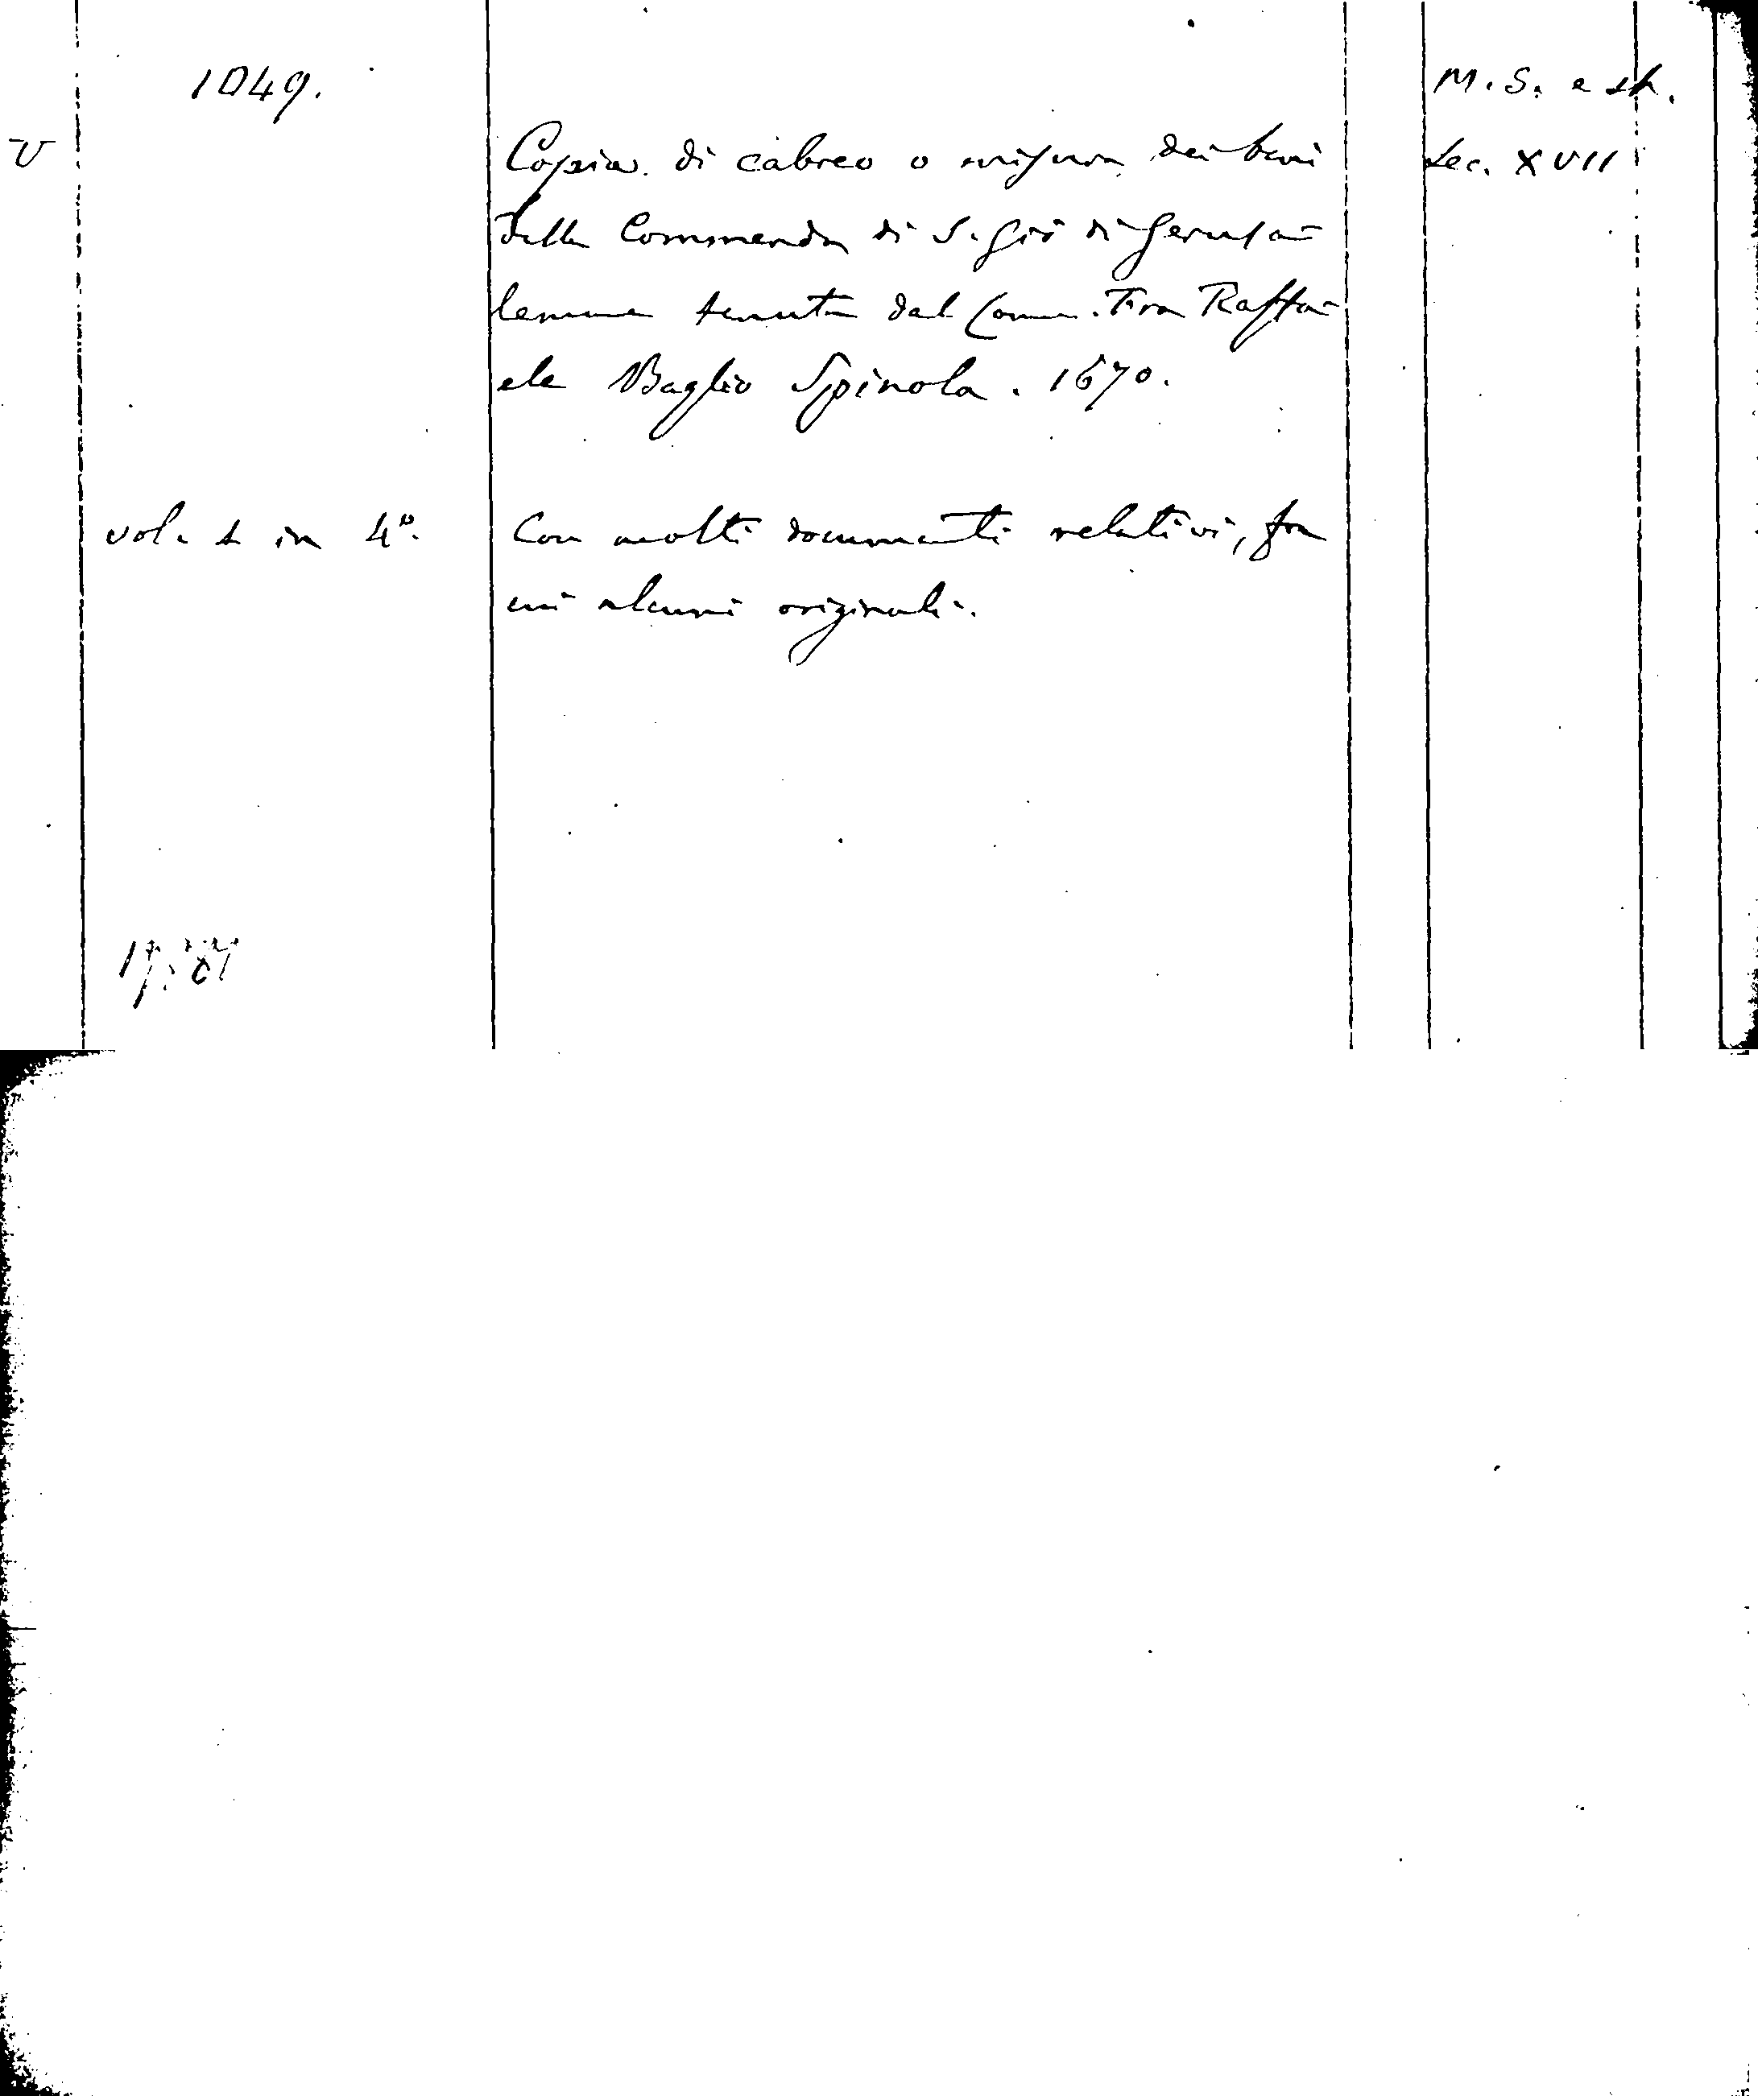 1049.
M. S. e st.
V
Copia di cabreo o misura dei beni
Sec. XVII
della Commenda di S. Gio di Gerusa=
lemme tenuta dal Comm. Fra Raffa=
ele Baglio Spinola. 1670.
vol. 1 in 4º.
Con molti documenti relativi, fra
cui alcuni originali.